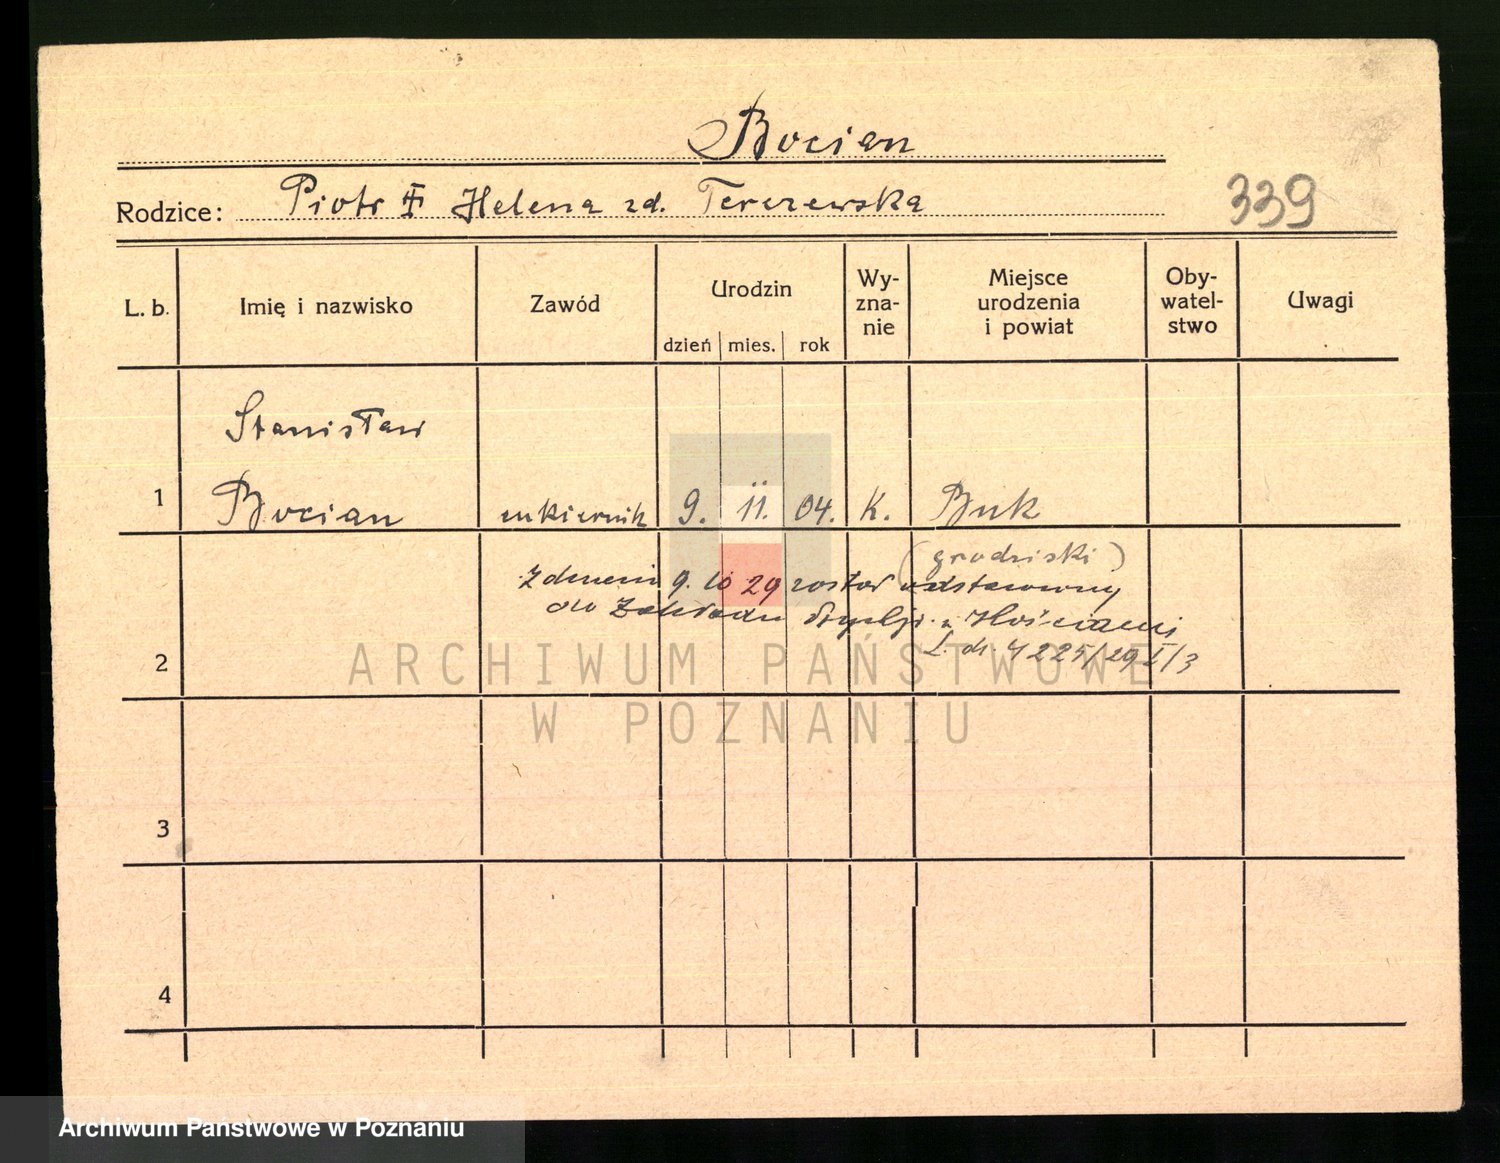 Bocian
Rodzice: Piotr Helena zd. Terczewska
339
L. b. Imię i nazwisko Zawód Urodzin dzień mies. rok Wy-zna-nie Miejsce urodzenia i powiat Oby-watel-stwo Uwagi
Stanisław
1 Bocian cukiernik 9. 11. 04. K. Buk
(grodziski)
Z dniem 9. 10 29 został odstawiony
do Zakładu w Kościanie
2 L. dz. 4225/29 I/3
ARCHIWUM PAŃSTWOWE
W POZNANIU
3
4
Archiwum Państwowe w Poznaniu